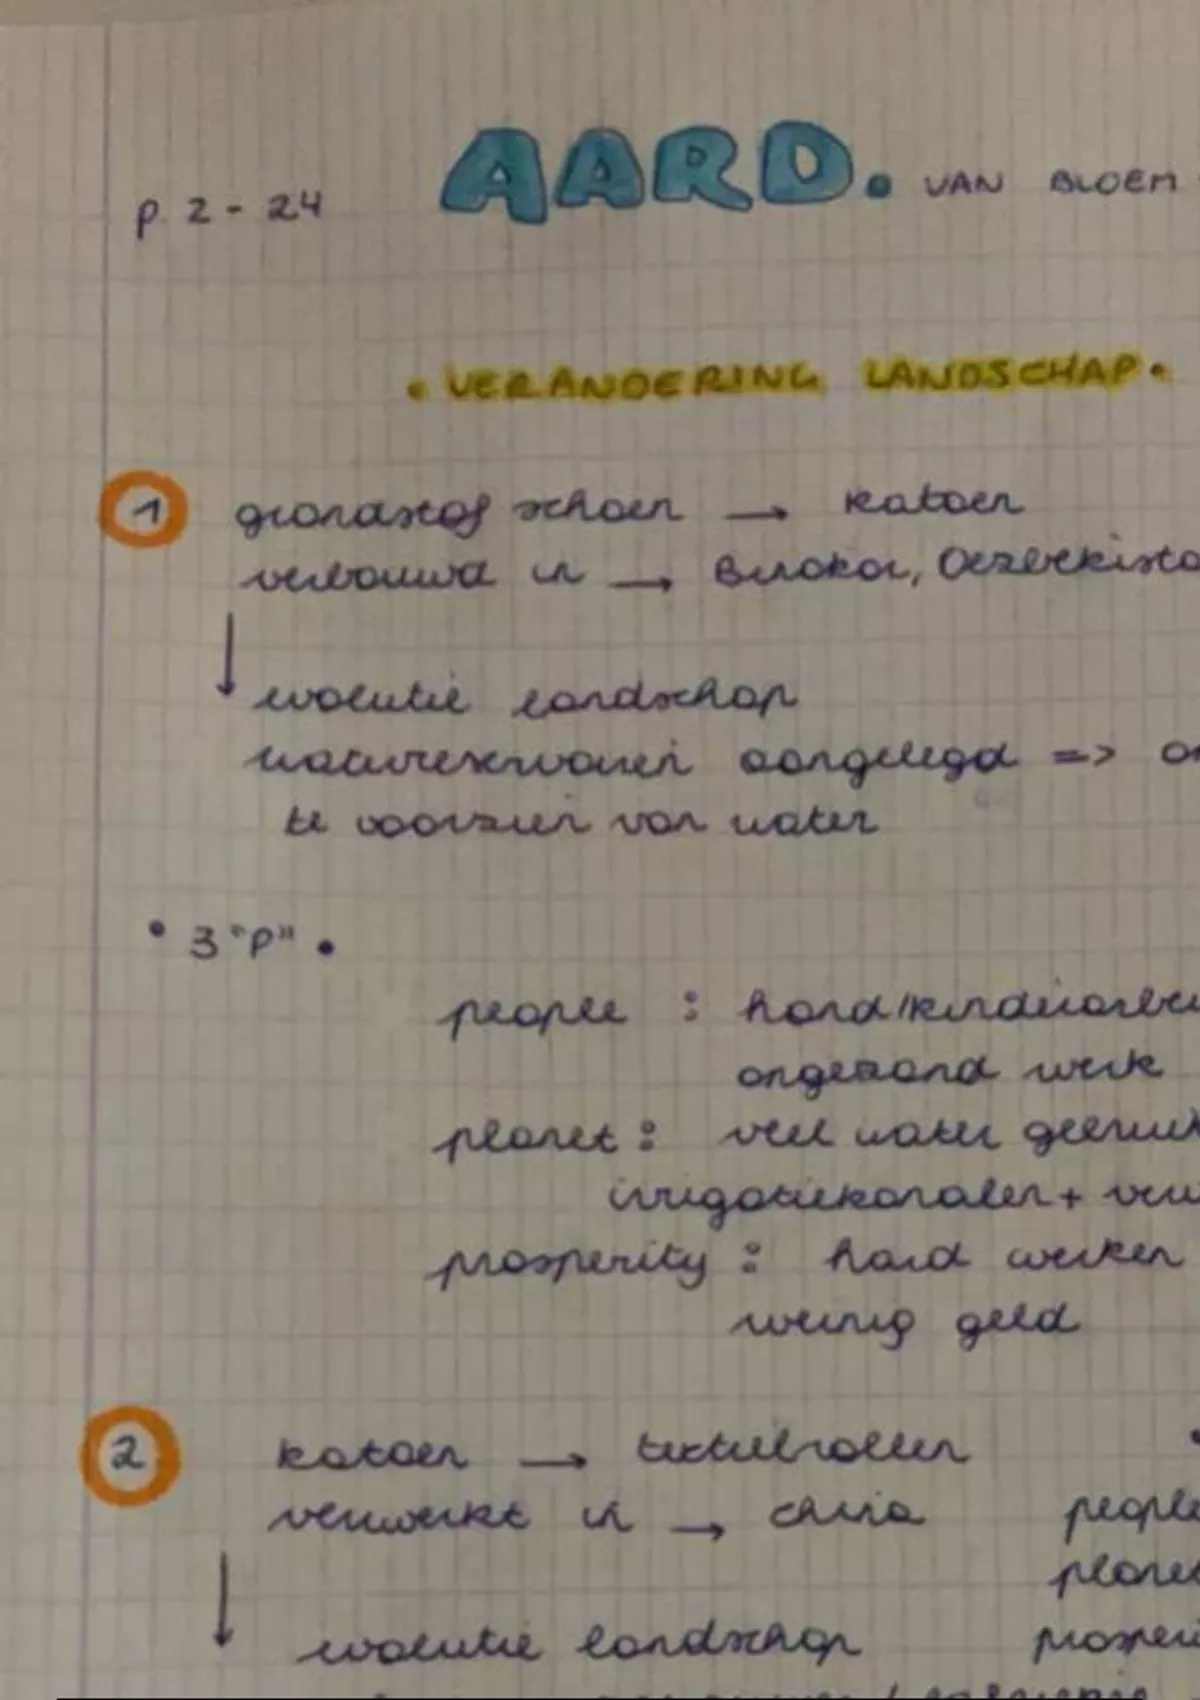 p. 2 - 24 AARD. VAN BLOEM
• VERANDERING LANDSCHAP •
1 grondstof schoen → katoen
verbouwd in → Burokoi, Oezbekista
↓
evolutie landschap
waterreservoiren aangelegd =>
te voorzien van water
• 3 "P" •
people : hard/kinderarbei
ongezond werk
planet : veel water gebruik
irrigatiekanalen +
prosperity : hard werken
weinig geld
2 katoen → textielrollen
verwerkt in → china people
↓ planet
evolutie landschap prosperi